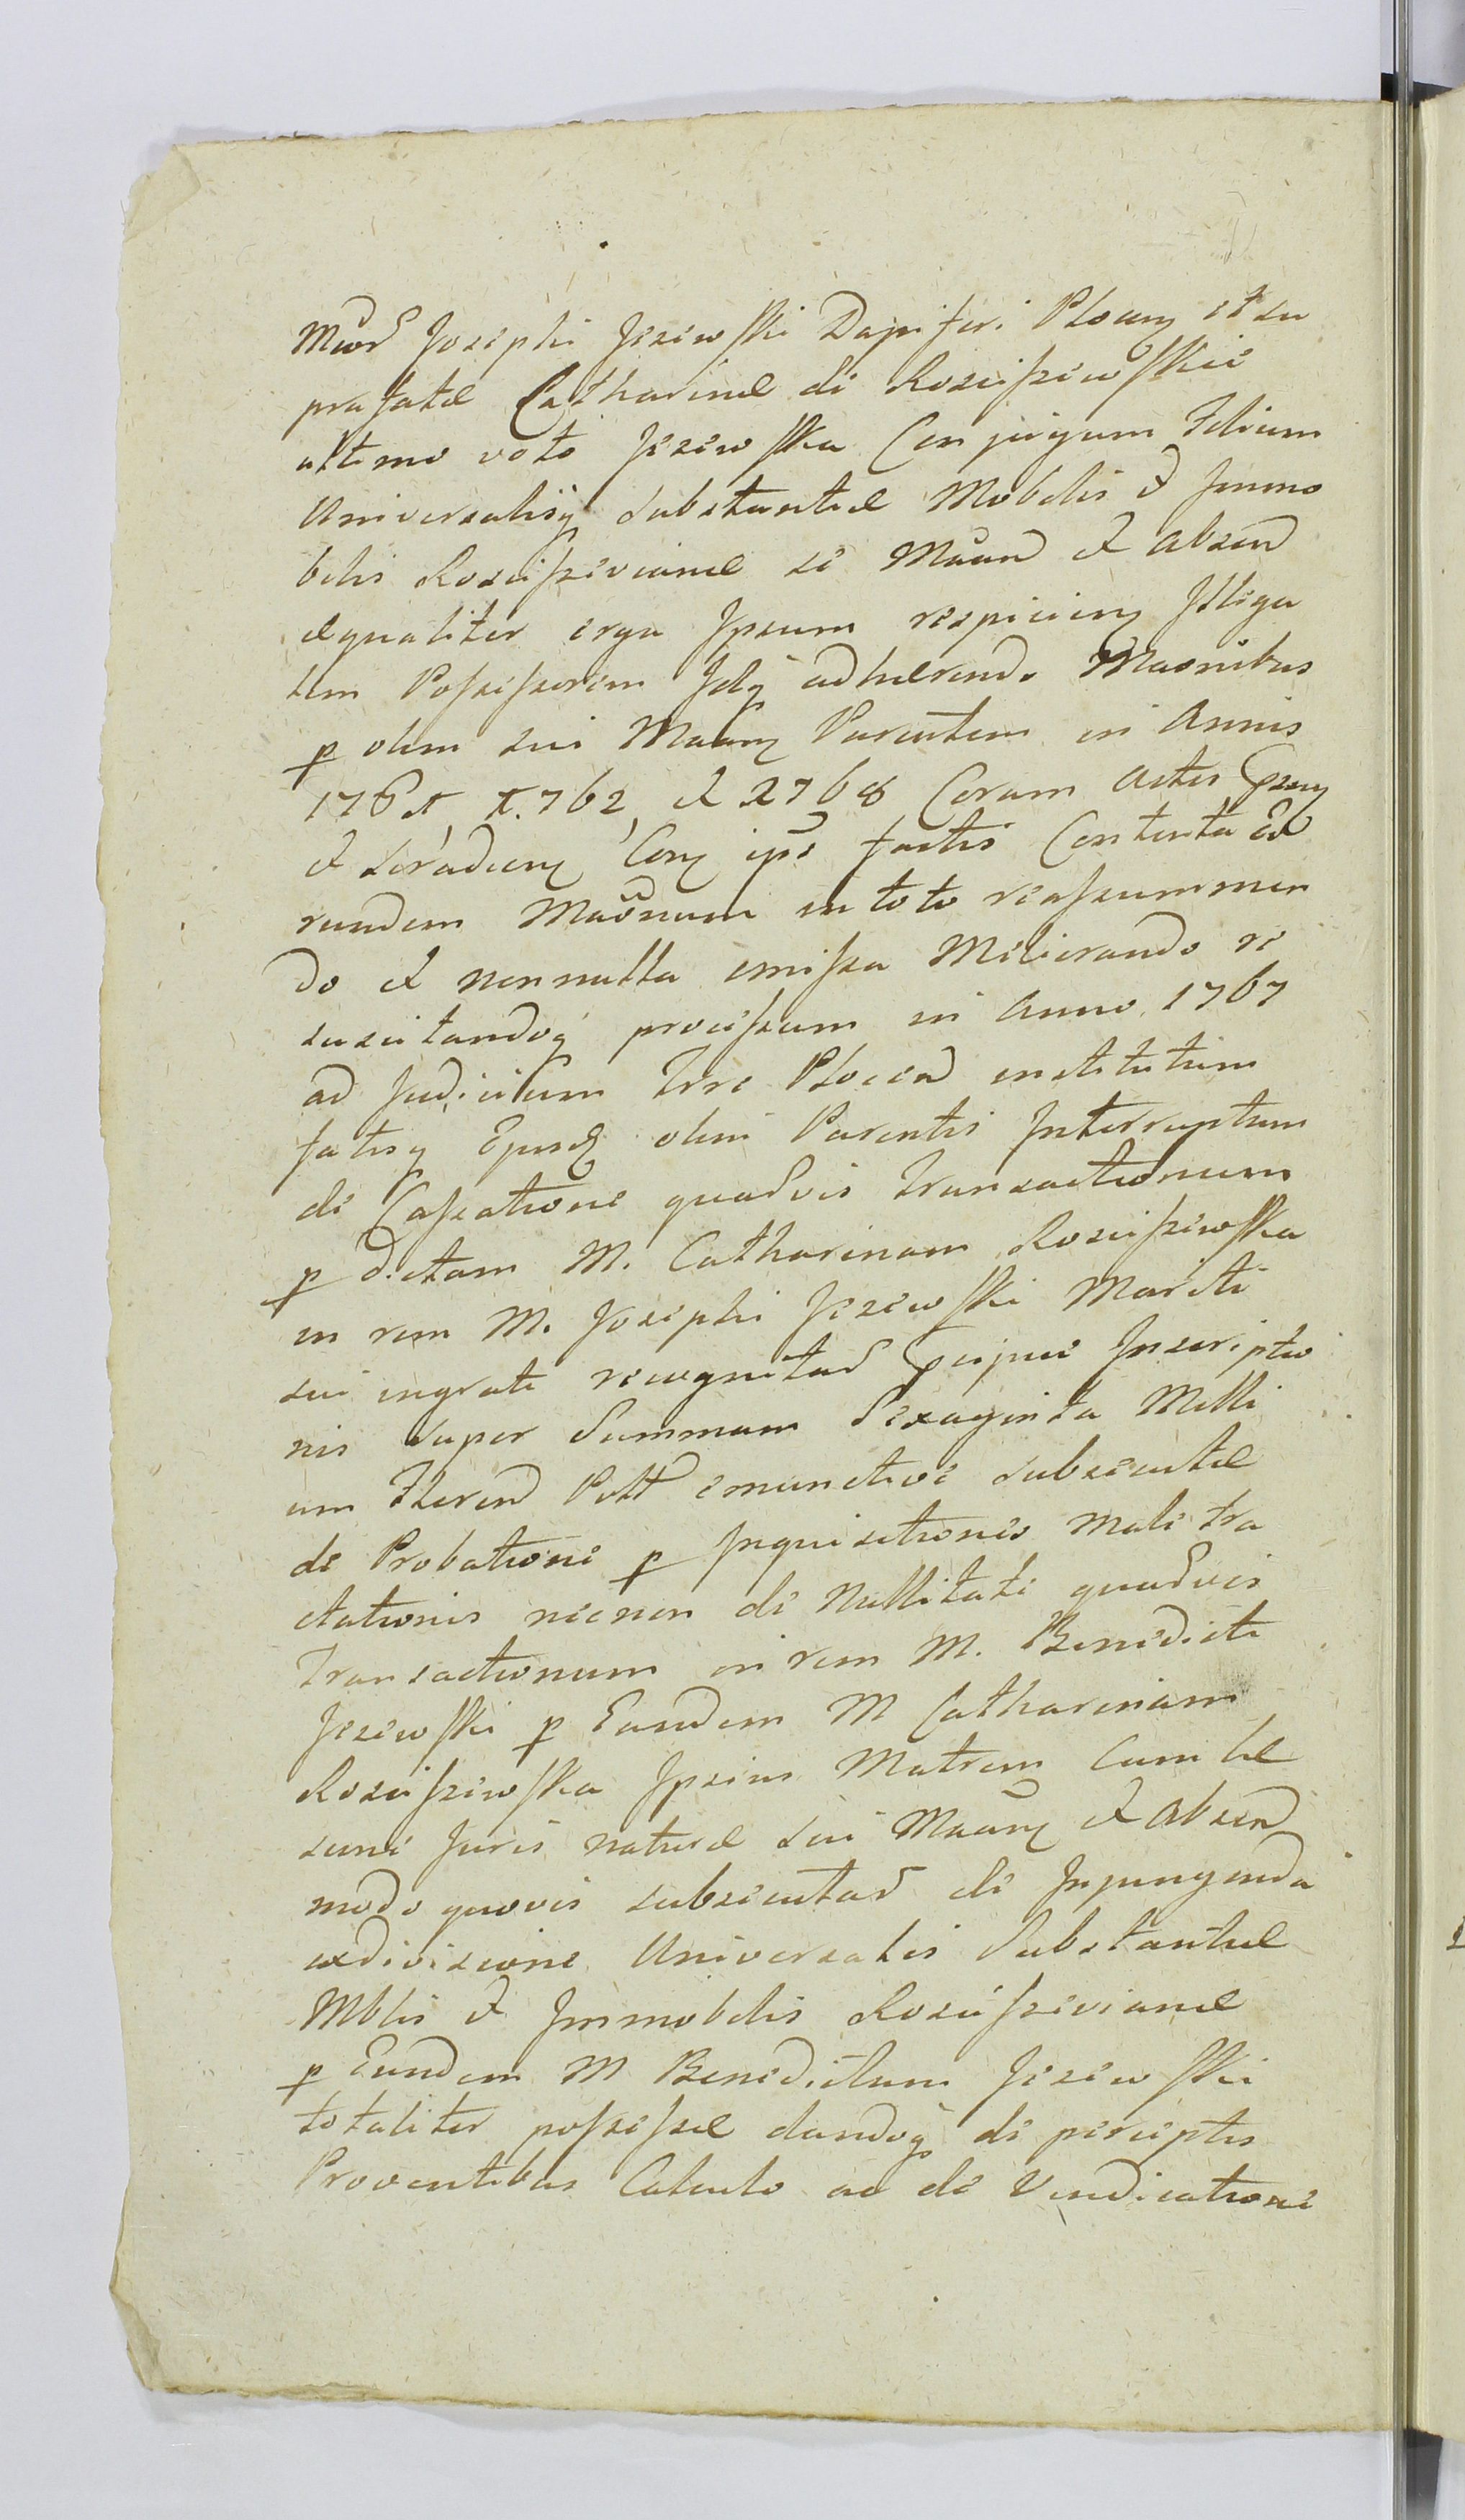 Josephi Jezewski Dapiferi Plocen et su
prafatæ Catharinæ de Rosciszewskie
ultimo voto Jezewska Conjugum Filium
Universalisq substantiæ Mobilis et Immo
bilis Rosciszewianæ se Maan et absen
æqualiter erga Ipsum respicien Illegi
tim Possessorem Idq adhærendo Maonibus
p olim sui Maan Parentem in Annis
1762 et 1768 Coram Actis
et Cen ips factis Contenta Ea
rundem Maonum in toto reassummen
do et nonnulla omissa Meliorando re
suscitandoq processum in Anno 1767
ad Judicium Trre Plocen institutum
fatisq Ejusd olim Parentis Interruptum
de Cassatione quarvis Transactionum
p dictam M. Catharinam Rosciszewska
in rem M. Josephi Jezewski Mariti
sui ingrati recognitar Inscriptio
nis super Summam Sexaginta Milli
um Floren Poll emunctive subsecutæ
de Probatione p Inquisitiones male tra
ctationis necnon de Nullitate quarvis
Transactionum in rem M. Benedicti
Jezewski p Eandem M Catharinam
Rosciszewska Ipsius Matrem Cum læ
sione Juris naturæ sui Maan et Absen
modo quovis subsecutar de Injungenda
exdivisione Universalis Substantiæ
Mblis et Immobilis Rosciszewianæ
p Eundem M Benedictum Jezewski
totaliter possessæ dandoq de perceptis
Proventibus Calculo ac de Vendicatione